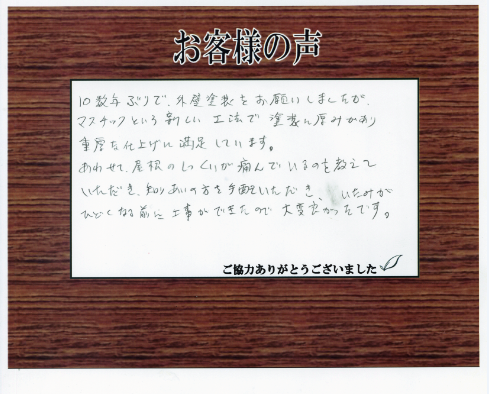 お客様の声
10数年ぶりで、外壁塗装をお願いしましたが、
マスチックという新しい工法で塗装に厚みがあり
重厚な仕上げに満足しています。
あわせて、屋根のしっくいが痛んでいるのを教えて
いただき、知りあいの方を手配いただき、いたみが
ひどくなる前に工事ができたので大変良かったです。
ご協力ありがとうございました